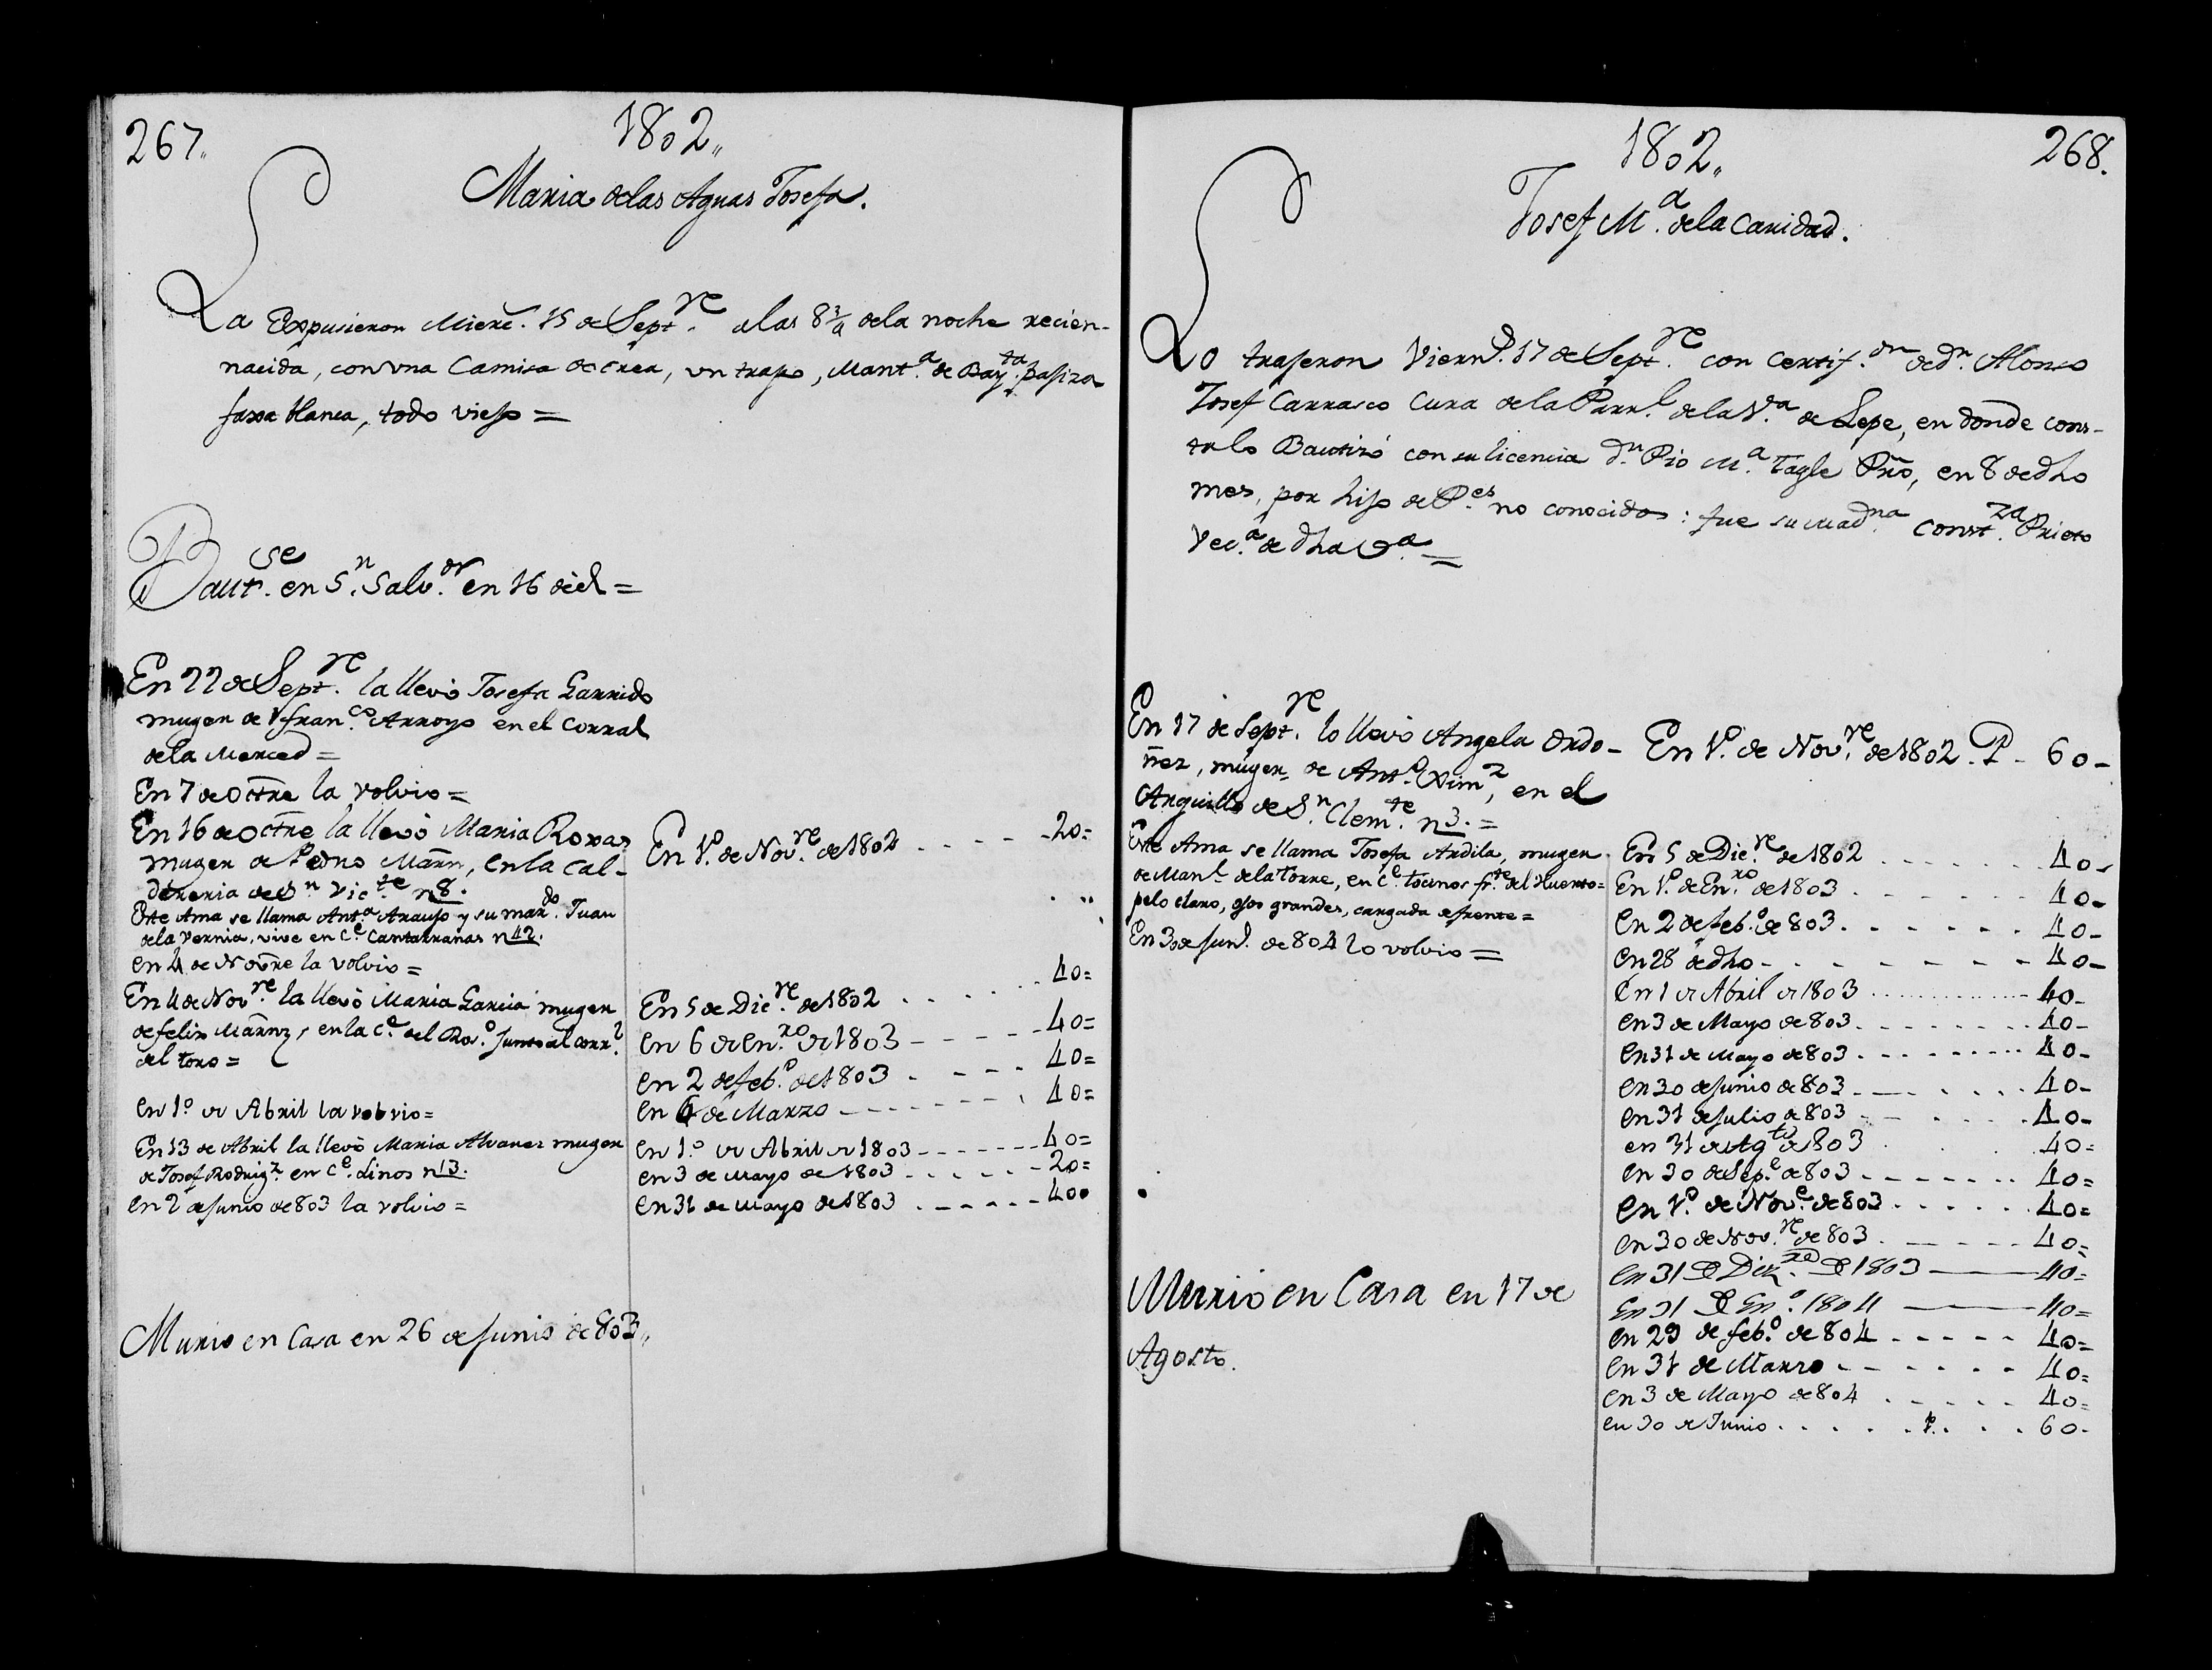 267.
1802,,
Maria delas Aguas Josefa.
La Expusieron Mierc. 15 de Sept.re alas 8 3/4 dela noche recien-
nacida, con vna Camisa de crea, vn trapo, Mant.a de Bay.ta pasiza
faxa blanca, todo viejo =
Baut.se en S.n Salv.or en 16 del =
En 22 de Sept.re la llevó Josefa Garrido
muger de Fran.co Arroyo en el Corral
dela Merced =
En 7 de Octre la volvio =
En 16 de Octre la llevó Maria Roxas
muger de Pedro Marn, en la Cal-
dereria de S.n Vic.te n 8.
Este Ama se llama Ant.a Araujo y su mar.do Juan
dela Vernia, vive en C.e Cantarranas n 42.
en 4 de Novre la volvio =
En 4 de Nov.re la llevó Maria Garcia muger
de felix Marnz, en la C.e del Ros.o Junto al corr.l
del toro =
en 1.o de Abril la volvio =
En 13 de Abril la llevó Maria Alvarez muger
de Josef Rodrig.z en C.e Linos n 13.
en 2 de Junio de 803 la volvio =
Murio en Casa en 26 de Junio de 803,,
En 1.o de Nov.re de 1802 . . . . 20=
En 5 de Dic.re de 1802 . . . . . 40=
en 6 de En.ro de 1803 - - - - 40=
en 2 de feb.o de 1803 . - - - 40=
en 6 de Marzo - - - - - - 40=
en 1.o de Abril de 1803 - - - - - 40=
en 3 de Mayo de 1803 . . . . . 20=
en 31 de Mayo de 1803 . - . - . - 40=
1802,,
268.
Josef M.a dela Caridad.
Lo trajeron Viern.s 17 de Sept.re con Certif.on de d.n Alonso
Josef Carrasco Cura dela Parr.l dela V.a de Lepe, en donde cons-
ta lo Bautizó con su licencia d.n Pio M.a Tagle Pro, en 8 de dho
mes, por hijo de P.es no conocidos: fue su Mad.na Const.za Prieto
Vec.a de dha V.a =
En 17 de Sept.re lo llevó Angela Ordo-
ñez, muger de Ant.o Xim.z, en el
Arquillo de S.n Clem.te n 3. =
Este Ama se llama Josefa Ardila, muger
de Man.l dela Torre, en C.e tocinos fr.te del Huerto=
pelo claro, ojos grandes, cargada de frente =
En 30 de Jun.o de 804 lo volvio =
Murió en Casa en 17 de
Agosto.
En 1.o de Nov.re de 1802 . P - 60-
En 5 de Dic.re de 1802 . . . . . . . 40-
En 1.o de En.ro de 1803 . - - - - 40-
en 2 de feb.o de 803 . . . . . . 40-
en 28 de dho - . - - - - - - 40-
en 1 de Abril de 1803 . . . . . . . . 40-
en 3 de Mayo de 803 . - - - - - - 40-
en 31 de Mayo de 803 . - - - - - - 40-
en 30 de Junio de 803 . - - . . . 40-
en 31 de Julio de 803 . - . . . . 40-
en 31 de Ag.to de 1803 . . . 40=
en 30 de Sep.e de 803 . - - - - - - 40=
en 1.o de Nov.e de 803 . . . . . . 40=
en 30 de Nov.re de 803 . - - - - - 40=
en 31 de Diz.re de 1803 ——— 40=
En 31 de En.o 1804 ——— 40=
en 29 de feb.o de 804 . - - - - 40=
en 31 de Marzo - - - - - - - 40=
en 3 de Mayo de 804 . . . . . 40=
en 30 de Junio . . . . . P. . . . 60-